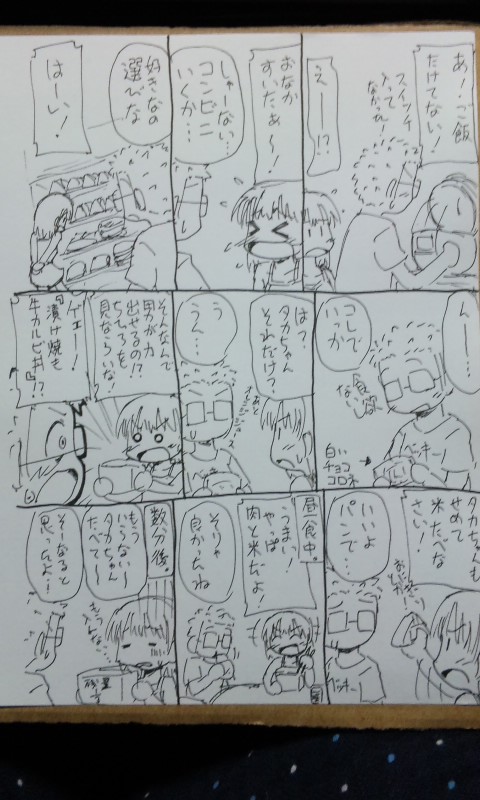 あ！ご飯
たけてない！
スイッチ
入って
なかった！
えーー!?
おなか
すいたぁ〜！
しゃーない…
コンビニ
いくか…
好きなの
選びな
はーい！
んー…
コレで
いっか
食欲
ない
白い
チョコ
コロネ
ベッキー
はっ？
タカちゃん
それだけ？
う
うん…
そんなんで
男が力
出せるの!?
ちひろを
見ならいな！
ゲェー！
『漬け焼き
牛カルビ丼』!?
タカちゃんも
せめて
米たべな
さい！
いいよ
パンで…
昼食中。
うまいっ！
やっぱ
肉と米だよ！
そりゃ
良かったね
数分後。
もう
いらない〜
タカちゃん
たべて〜
そーなると
思ったよ！